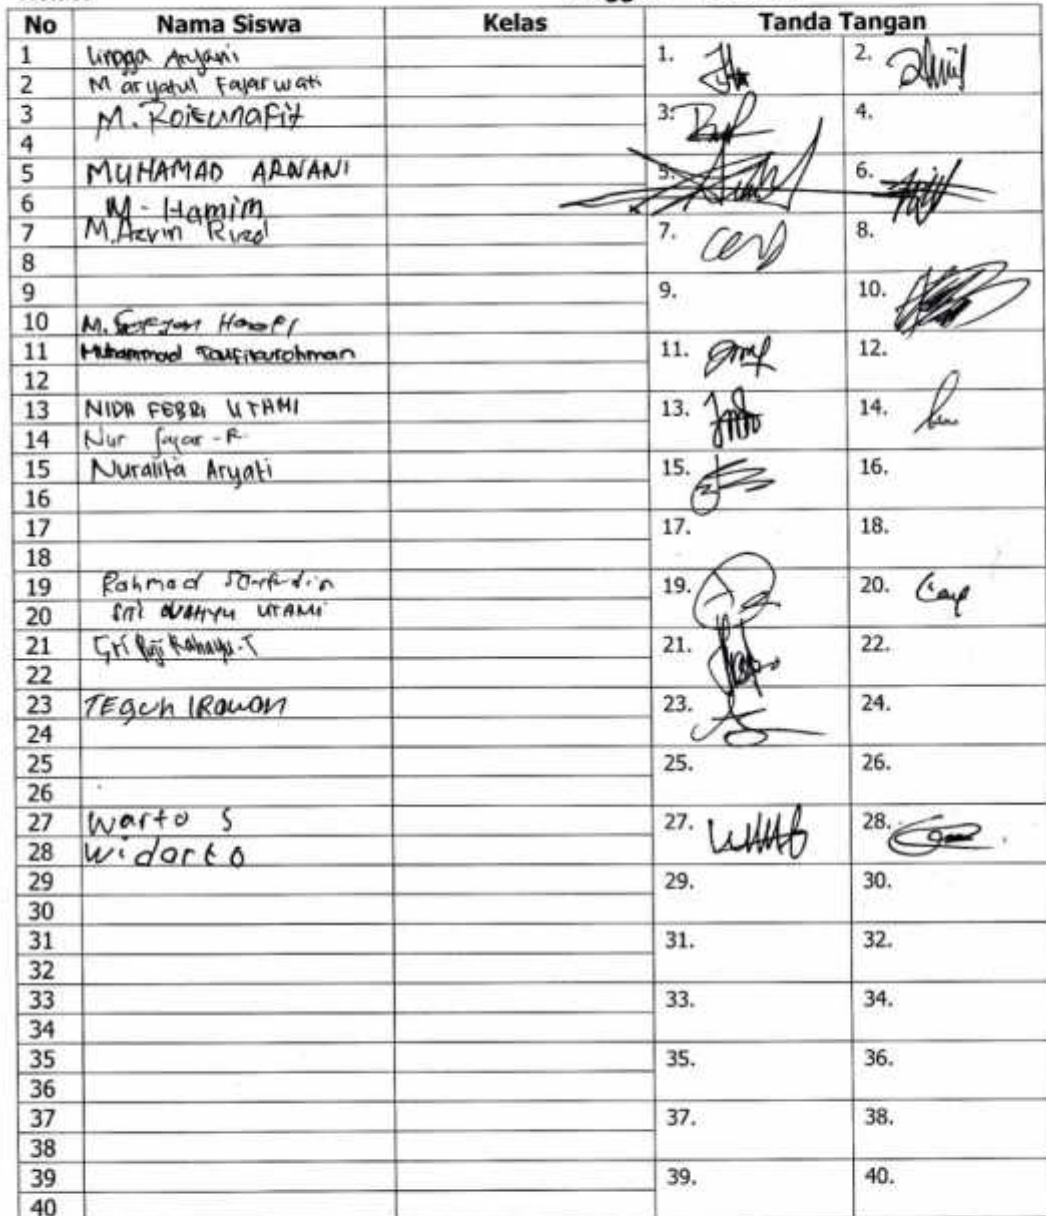 No Nama Siswa Kelas Tanda Tangan
1 Lingga Aryani 1. 2.
2 Maryatul Fajarwati
3 M. Roisunafit 3. 4.
4
5 MUHAMAD ARNANI 5. 6.
6 M. Hamim
7 M. Azvin Rizal 7. 8.
8
9 9. 10.
10 M.
11 Muhammad Taufikurohman 11. 12.
12
13 NIDA FEBRI UTAMI 13. 14.
14 Nur fajar - R.
15 Nuralita Aryati 15. 16.
16
17 17. 18.
18
19 Rahmad 19. 20.
20 SRI WAHYU UTAMI
21 Sri Puji Rahayu. T 21. 22.
22
23 TEGUH IRAWAN 23. 24.
24
25 25. 26.
26
27 Warto S 27. 28.
28 Widarto
29 29. 30.
30
31 31. 32.
32
33 33. 34.
34
35 35. 36.
36
37 37. 38.
38
39 39. 40.
40